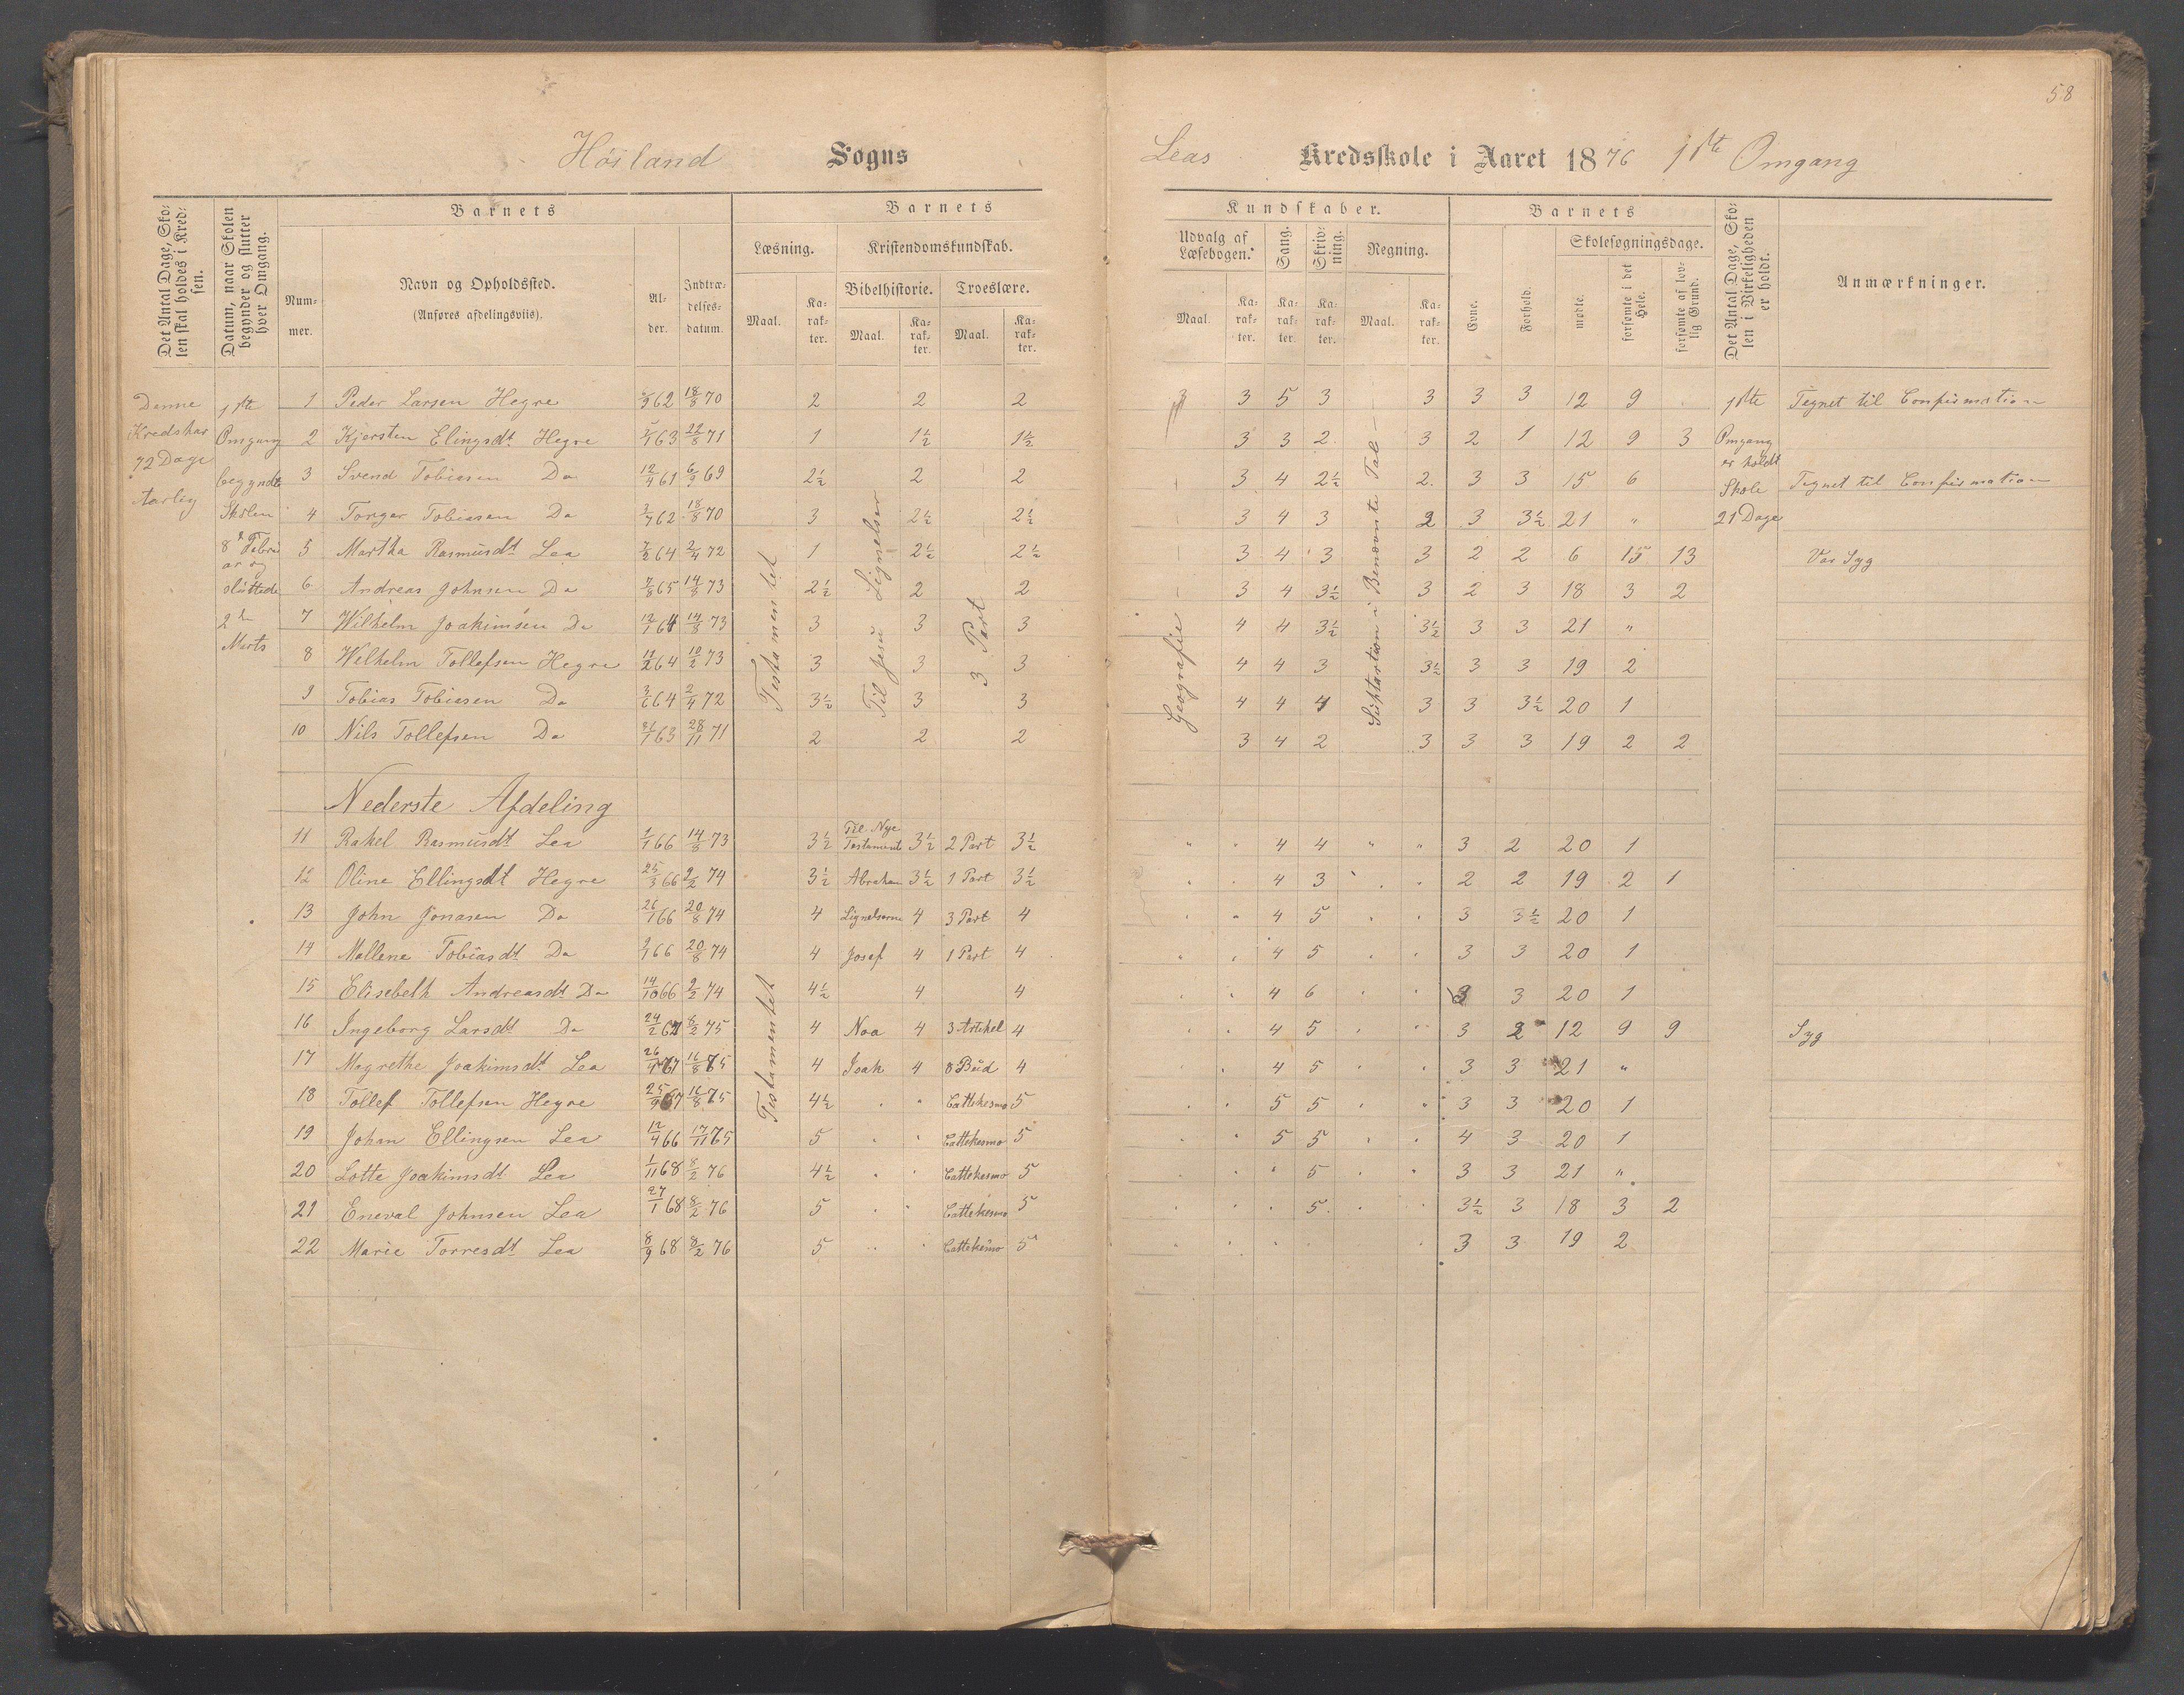 58
Høiland Sogns
Leas Kredsskole i Aaret 1876 1ste Omgang
Det Antal Dage, Skolen skal holdes i Kredsen.
Datum, naar Skolen begynder og slutter hver Omgang.
Barnets
Nummer.
Navn og Opholdssted.
(Anføres afdelingsviis).
Alder.
Indtrædelsesdatum.
Barnets
Læsning.
Kristendomskundskab.
Bibelhistorie. Troeslære.
Maal. Karakter. Maal. Karakter. Maal. Karakter.
Kundskaber.
Udvalg af Læsebogen. Sang. Skrivning. Regning.
Maal. Karakter. Karakter. Karakter. Maal. Karakter.
Barnets
Evne. Forhold. Skolesøgningsdage.
mødte. forsømte i det Hele. forsømte af lovlig Grund.
Det Antal Dage, Skolen i Virkeligheden er holdt.
Anmærkninger.
Denne
Kredshar
72 Dage
Aarlig
1ste
Omgang
begyndte
Skolen
8de Febru
ar og
sluttede
2de
Marts
Testamentet
Til Jesu Lignelser
3 Part
Geografie
i Benævnte Tal
1 Peder Larsen Hegre 62 18/8 70 2 2 2 3 5 3 3 3 3 12 9 Tegnet til Confirmation
2 Kjersten Elingsdt. Hegre 63 22/8 71 1 1½ 1½ 3 3 2 3 2 1 12 9 3
3 Svend Tobiasen Do 12/4 61 6/9 69 2½ 2 2 3 4 2½ 2 3 3 15 6 Tegnet til Confirmation
4 Torger Tobiasen Do 62 18/8 70 3 2½ 2½ 3 4 3 2 3 3½ 21 "
5 Martha Rasmusdt Lea 7/2 64 2/4 72 1 2½ 2½ 3 4 3 3 2 2 6 15 13 Var Syg
6 Andreas Johnsen Do 7/8 65 14/8 73 2½ 2 2 3 4 3½ 3 2 3 18 3 2
7 Wilhelm Joakimsen Do 12/1 64 14/8 73 3 3 3 4 4 3½ 3½ 3 3 21 "
8 Welhelm Tollefsen Hegre 11/2 64 10/2 73 3 3 3 4 4 3 3½ 3 3 19 2
9 Tobias Tobiasen Do 64 2/4 72 3½ 3 3 4 4 4 3 3 3½ 20 1
10 Nils Tollefsen Do 63 28/11 71 2 2 2 3 4 2 3 3 3 19 2 2
1ste
Omgang
er holdt
Skole
21 Dage
Nederste Afdeling
Testamentet
11 Rakel Rasmusdt Lea 1/1 66 14/8 73 3½ Til Nye Testamente 3½ 2 Part 3½ " " 4 4 " " 3 2 20 1
12 Oline Ellingsdt Hegre 25/3 66 2/2 74 3½ Abraham 3½ 1 Part 3½ 4 3 2 2 19 2 1
13 John Jonasen Do 26/1 66 20/8 74 4 Lignelserne 4 3 Part 4 4 5 3 3½ 20 1
14 Mallene Tobiasdt Do 66 20/8 74 4 Josef 4 1 Part 4 4 5 3 3 20 1
15 Elisebeth Andreasdt Do 14/10 66 2/2 74 4½ 4 4 4 6 3 3 20 1
16 Ingeborg Larsdt Do 24/2 67 8/2 75 4 Noa 4 3 Artikel 4 4 5 3 2 12 9 9 Syg
17 Magrethe Joakimsdt Lea 67 16/8 75 4 Isak 4 8 Bud 4 4 5 3 3 21 "
18 Tollef Tollefsen Hegre 25/9 67 16/8 75 4½ Cattekesmo 5 5 5 3 3 20 1
19 Johan Ellingsen Lea 12/4 66 17/11 75 5 Cattekesmo 5 5 5 4 3 20 1
20 Lotte Joakimsdt Lea 1/11 68 8/2 76 4½ Cattekesmo 5 5 3 3 21 "
21 Eneval Johnsen Lea 27/1 68 8/2 76 5 Cattekesmo 5 5 3½ 3 18 3 2
22 Marie Torresdt Lea 8/9 68 8/2 76 5 Cattekesmo 5 3 3 19 2